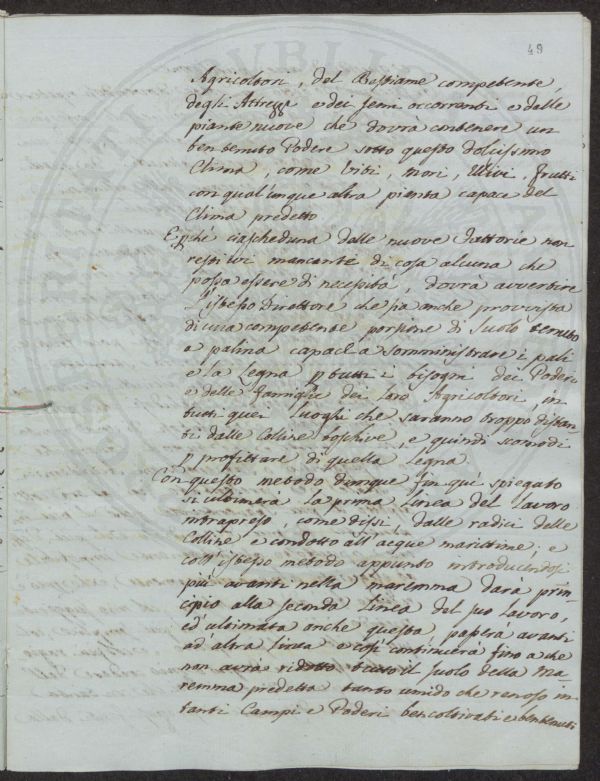 49
Agricoltori, del Bestiame competente,
degli Attrezzi e dei semi occorrenti e dalle
piante nuove che dovrà contenere un
ben tenuto Podere sotto questo dolcissimo
Clima, come Viti, Mori, Ulivi, frutti
con qual'unque altra pianta capace del
Clima predetto
E pché ciascheduna dalle nuove fattorie non
resti ivi mancante di cosa alcuna che
possa essere di necessità, dovrà avvertire
l'istesso Direttore, che sia anche provvista
di una competente porzione di suolo tenuto
a palina capace a somministrare i pali
e la legna p tutti i bisogni dei Poderi
e delle famiglie dei loro Agricoltori in
tutti quei luoghi che saranno troppo distan-
ti dalle Colline boschive, e quindi scomodi
p profittare di quella legna
Con questo metodo dunque fin qui spiegato
si ultimerà la prima linea del lavoro
intrapreso, come dissi, dalle radici delle
Colline e condotto all'acque marittime, e
coll'istesso metodo appunto introducendosi
più avanti nella maremma darà prin-
cipio alla seconda linea del suo lavoro,
ed ultimata anche questa, passerà avanti
ad'altra e così continuerà fino a che
non avrà ridotto tutto il suolo della Ma-
remma predetta tanto umido che renoso in
tanti Campi e Poderi ben coltivati e ben tenuti